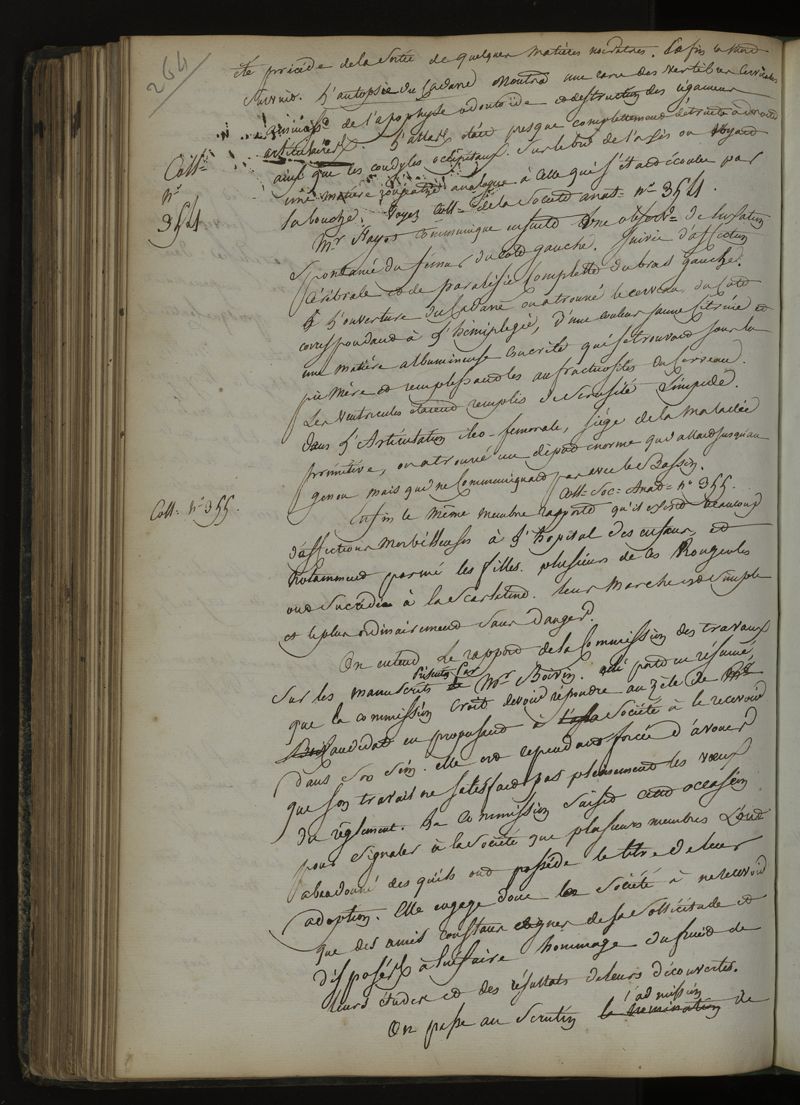 264
été précédé de la sortie de quelques matières noirâtres. Enfin la mort
survint. L'autopsie du cadavre montra une carie des vertèbres cervicales
de l'apophyse odontoïde et destruction des ligamens
articulaires. L'atlas était presque complettement détruit
ainsi que les condyles occipitaux. Sur le bord de l'axis on voyait
une matière analogue à celle qui s'était écoulée par
la bouche. Voyez Coll= de la Société anat= n° 354.
Coll=
n°
354
Mr communique ensuite une observ= de luxation
spontanée du fémur du côté gauche. Suivie d'affection
cérébrale et de paralisie complette du bras gauche.
à l'ouverture du cadavre on a trouvé le cerveau du côté
correspondant à l'hémiplegie, d'une couleur jaune citrine et
une matière albumineuse concrète qui se trouvait sous la
pie mère et remplissait les anfractuosités du cerveau.
Les ventricules étaient remplis de sérosité limpide.
Dans l'articulation iléo-femorale, siège de la maladie
primitive, on a trouvé un dépôt énorme qui allait jusqu'au
genou mais qui ne communiquait pas avec le Bassin.
Coll= Soc= Anat= n° 355.
Coll= N° 355.
Enfin le même membre rapporte qu'il existe beaucoup
d'affections morbilleuses à l'hopital des enfans, et
notamment parmi les filles. plusieurs de ces Rougeoles
ont succédé à la scarlatine. leur marche est simple
et le plus ordinairement sans danger.
On entend le rapport de la Commission des travaux
sur les manuscrits présentés par Mr Boivin. porte en résumé,
que la commission croit devoir répondre au zèle de
candidat en proposant à la Société à le recevoir
dans son sein. elle est cependant forcée d'avouer
que son travail ne satisfait pas pleinement les vœux
du règlement. La Commission saisit cette occasion
pour signaler à la Société que plusieurs membres l'ont
abandonné dès qu'ils ont possédé le titre de leur
adoption. Elle engage donc la Société à ne recevoir
que des amis constans dignes de sa sollicitude et
disposés à lui faire hommage du fruit de
leurs études et des résultats de leurs découvertes.
On passe au scrutin l'admission la nomination de